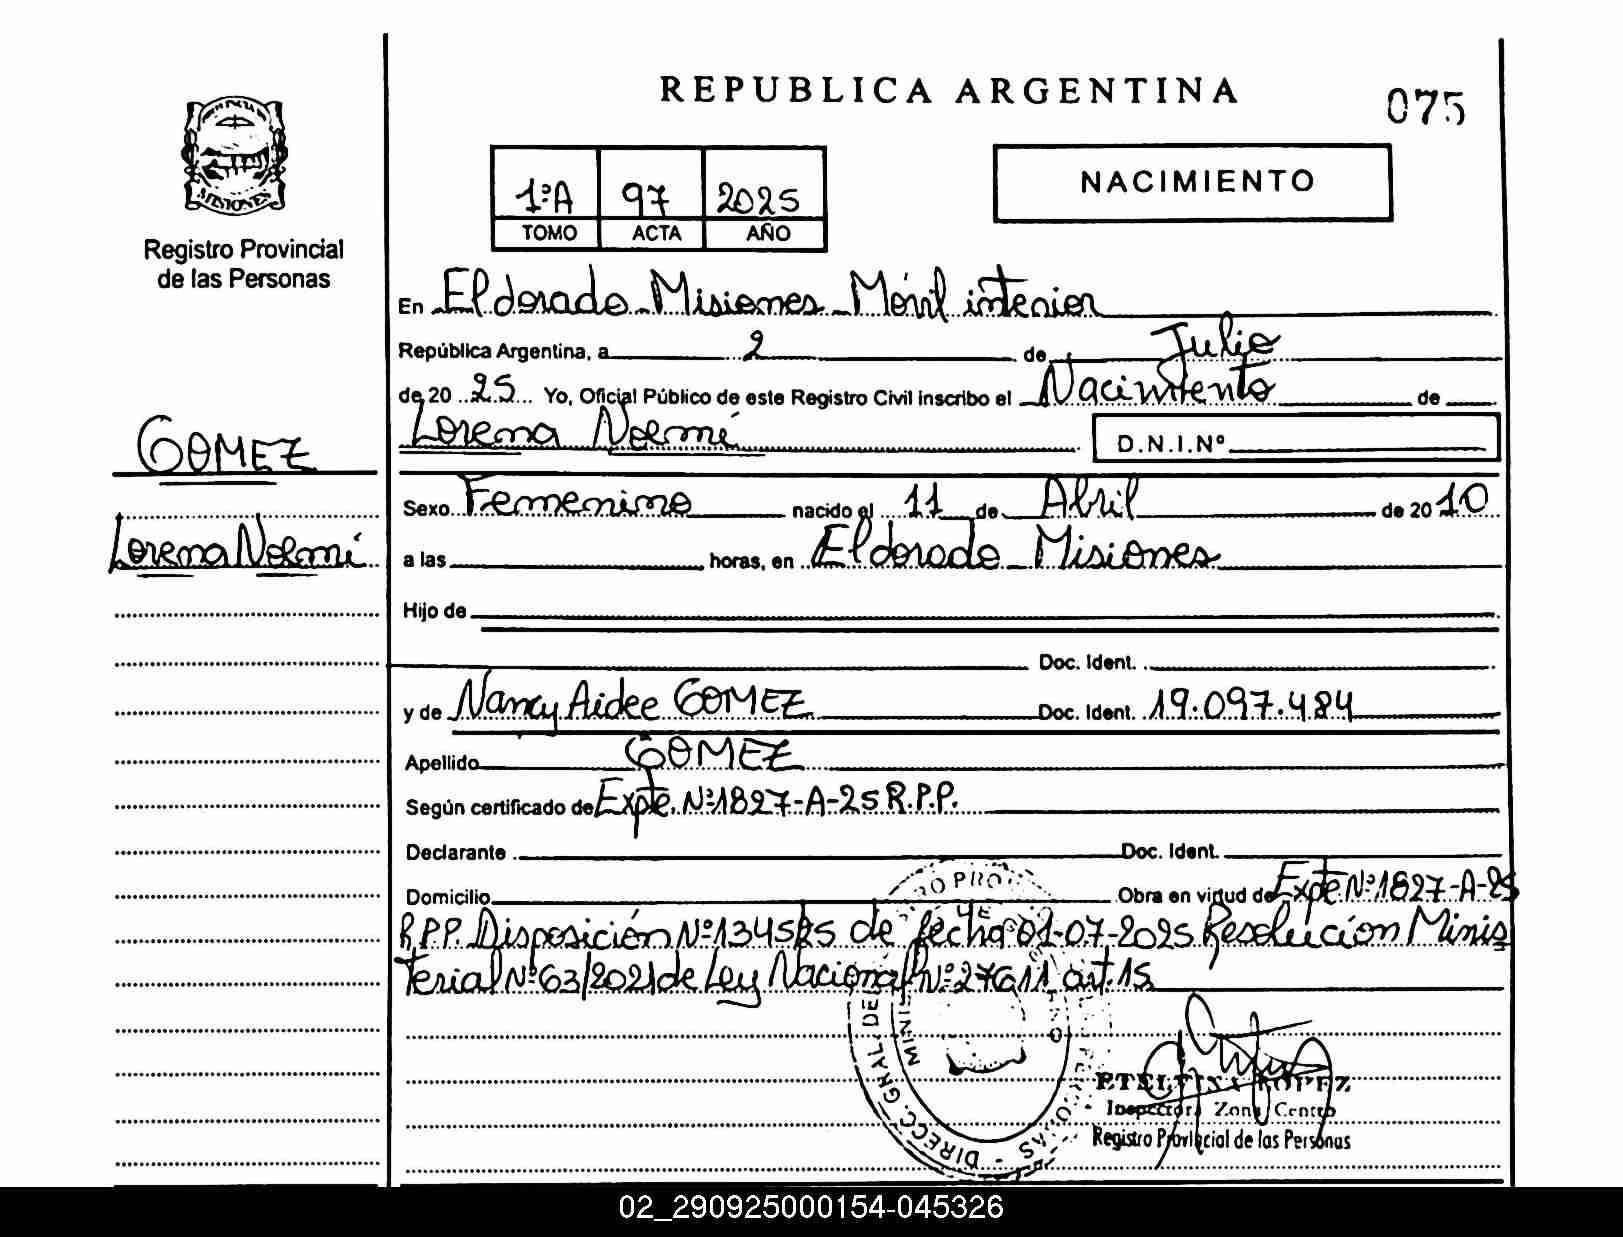 REPUBLICA ARGENTINA
075
MISIONES
Registro Provincial
de las Personas
1ºA 97 2025
TOMO ACTA AÑO
NACIMIENTO
En Eldorado Misiones Móvil interior
República Argentina, a 2 de Julio
de 20 25 Yo, Oficial Público de este Registro Civil inscribo el Nacimiento de
Lorena Noemí D.N.I.Nº
GOMEZ
Lorena Noemí
Sexo Femenino nacido el 11 de Abril de 20 10
a las horas, en Eldorado Misiones
Hijo de
Doc. Ident.
y de Nancy Aidee GOMEZ Doc. Ident. 19.097.484
Apellido GOMEZ
Según certificado de Expte. Nº1827-A-25 R.P.P.
Declarante Doc. Ident.
Domicilio Obra en virtud de Expte Nº1827-A-25
R.P.P. Disposición Nº1345/25 de fecha 01-07-2025 Resolución Minis
terial Nº63/2021 de Ley Nacional Nº27611 art.15
DIRECC. GRAL. DE
ETELVINA LOPEZ
Inspectora Zona Centro
Registro Provincial de las Personas
02_290925000154-045326